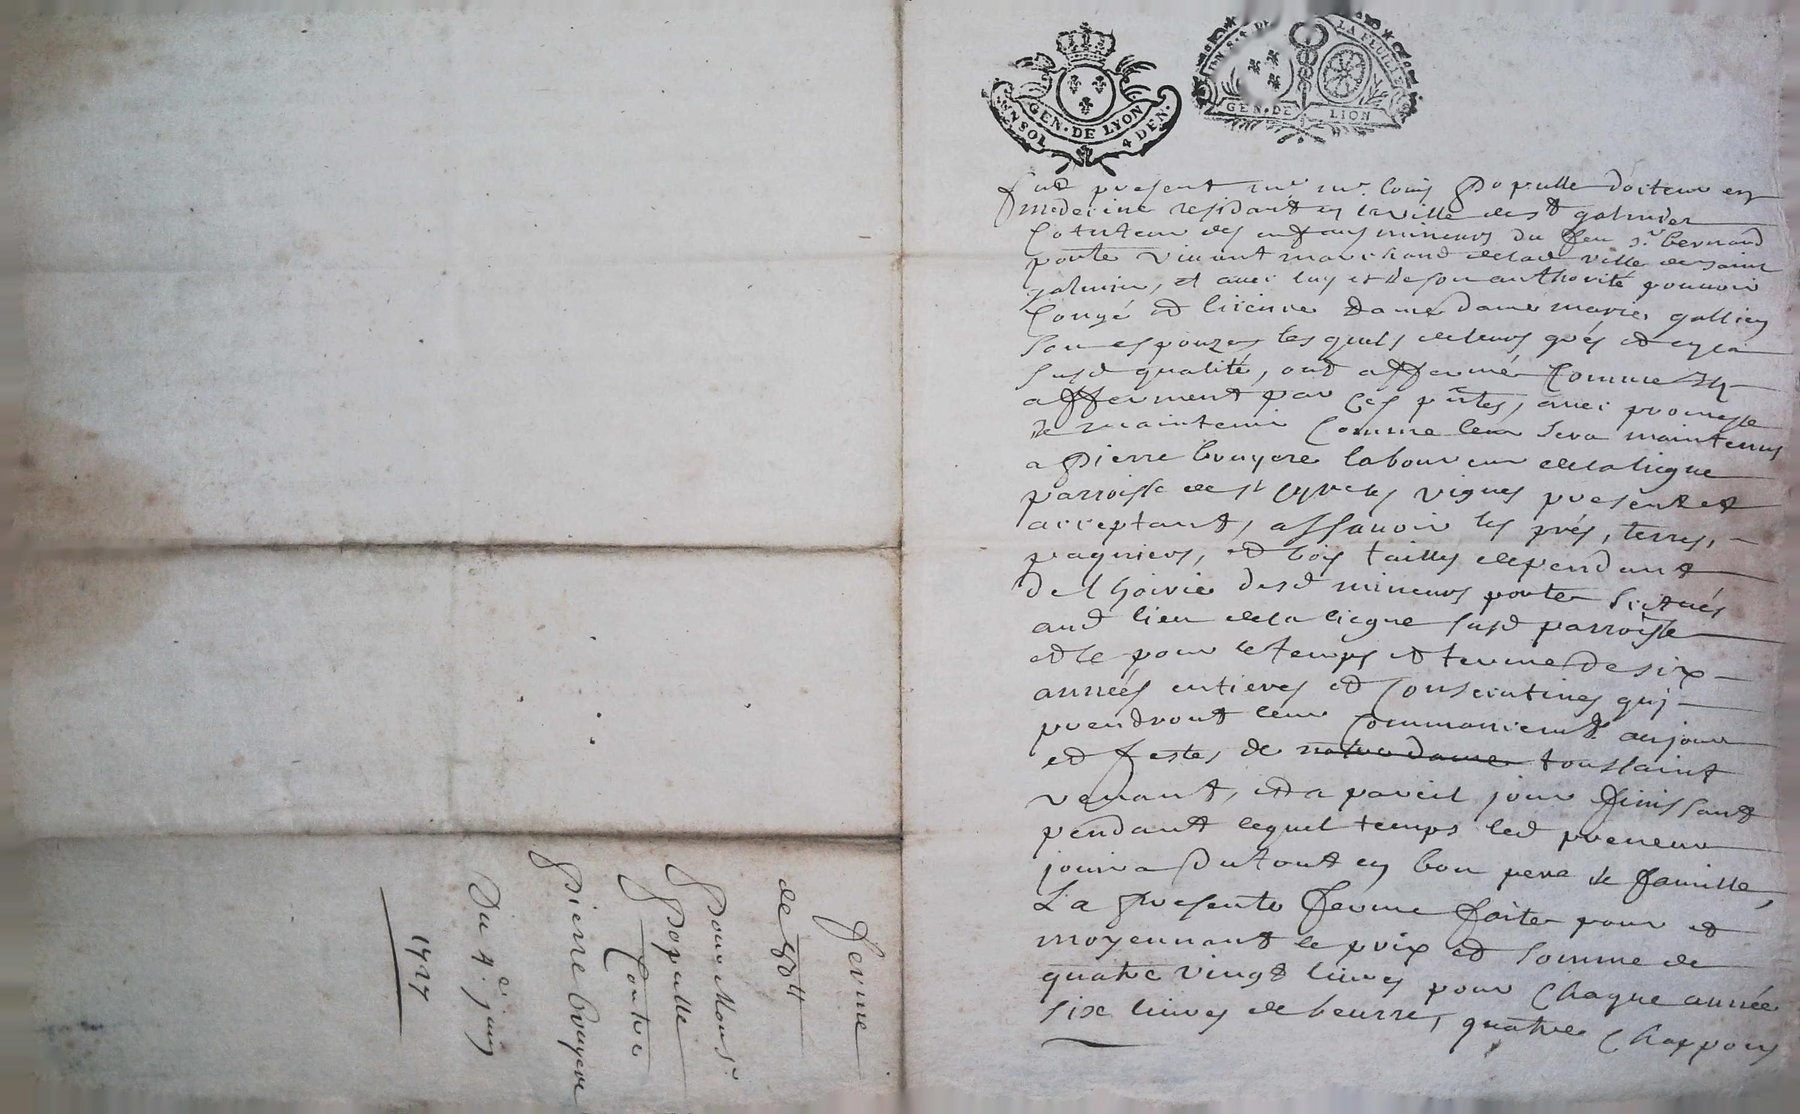 UN SOL
GEN. DE LYON
4 DEN.
LA FEUILLE
GEN. DE LION
fut present mr. mr. Louis Populle docteur en
medecine residant en la ville de st galmier
Cotuteur des enfans mineurs du feu sr. bernard
ponte vivant marchand de lad ville de saint
galmier, et avec luy et de son authorité pouvoir
Congé et licience dame dame marie gallien
son espouze, lesquels de leurs grés et en la
susd qualité, ont affermé Comme Ils
afferment par Ces pntes, avec promesse
de maintenir Comme leur sera maintenus
a Pierre bruyere laboureur de la liegue
parroisse de st Cyr les vignes present et
acceptant, assavoir les prés, terres,
paquiers, et bois taillis dependant
de l hoirie desd mineurs ponte scitués
aud lieu de la liegue susd parroisse
et le pour le temps et terme de six
années entieres et Consecutives quj
prendront leur Commancement au jour
et feste, de notre dame toussaint
venant, et a pareil jour finissant
pendant lequel temps led preneur
jouira du tout en bon pere de famille,
La presente ferme faite pour et
moyennant le prix et somme de
quatre vingt livres pour Chaque année
six livres de beurre, quatre Chappons
ferme
de 80 ll
Pour Monsr.
Populle
Contre
Pierre bruyere
Du 4e. juin
1727